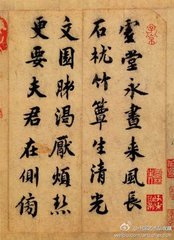 虛堂永晝來風長
石枕竹簟生清光
文園渴厭煩熱
更要夫君在側傍